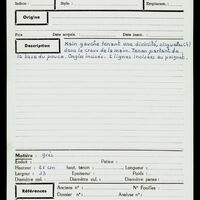 Indice : Style : Emplacem. :
Origine
Prix Date acquis. Date insc. :
Description
Main gauche tenant une divinité, cliquetis(?)
dans le creux de la main. Tenon partant de
la base du pouce. Ongles incisés. 2 lignes incisées au poignet.
Matière : grès
Enduit : Patine :
Hauteur : 21 cm haut. tenon : Longueur :
Largeur : 13 Epaisseur : Poids :
Diamètre sol. : Diamètre col. : Diamètre panse :
Références
Anciens n° : N° Fouilles :
Dossier n° : Analyse n° :